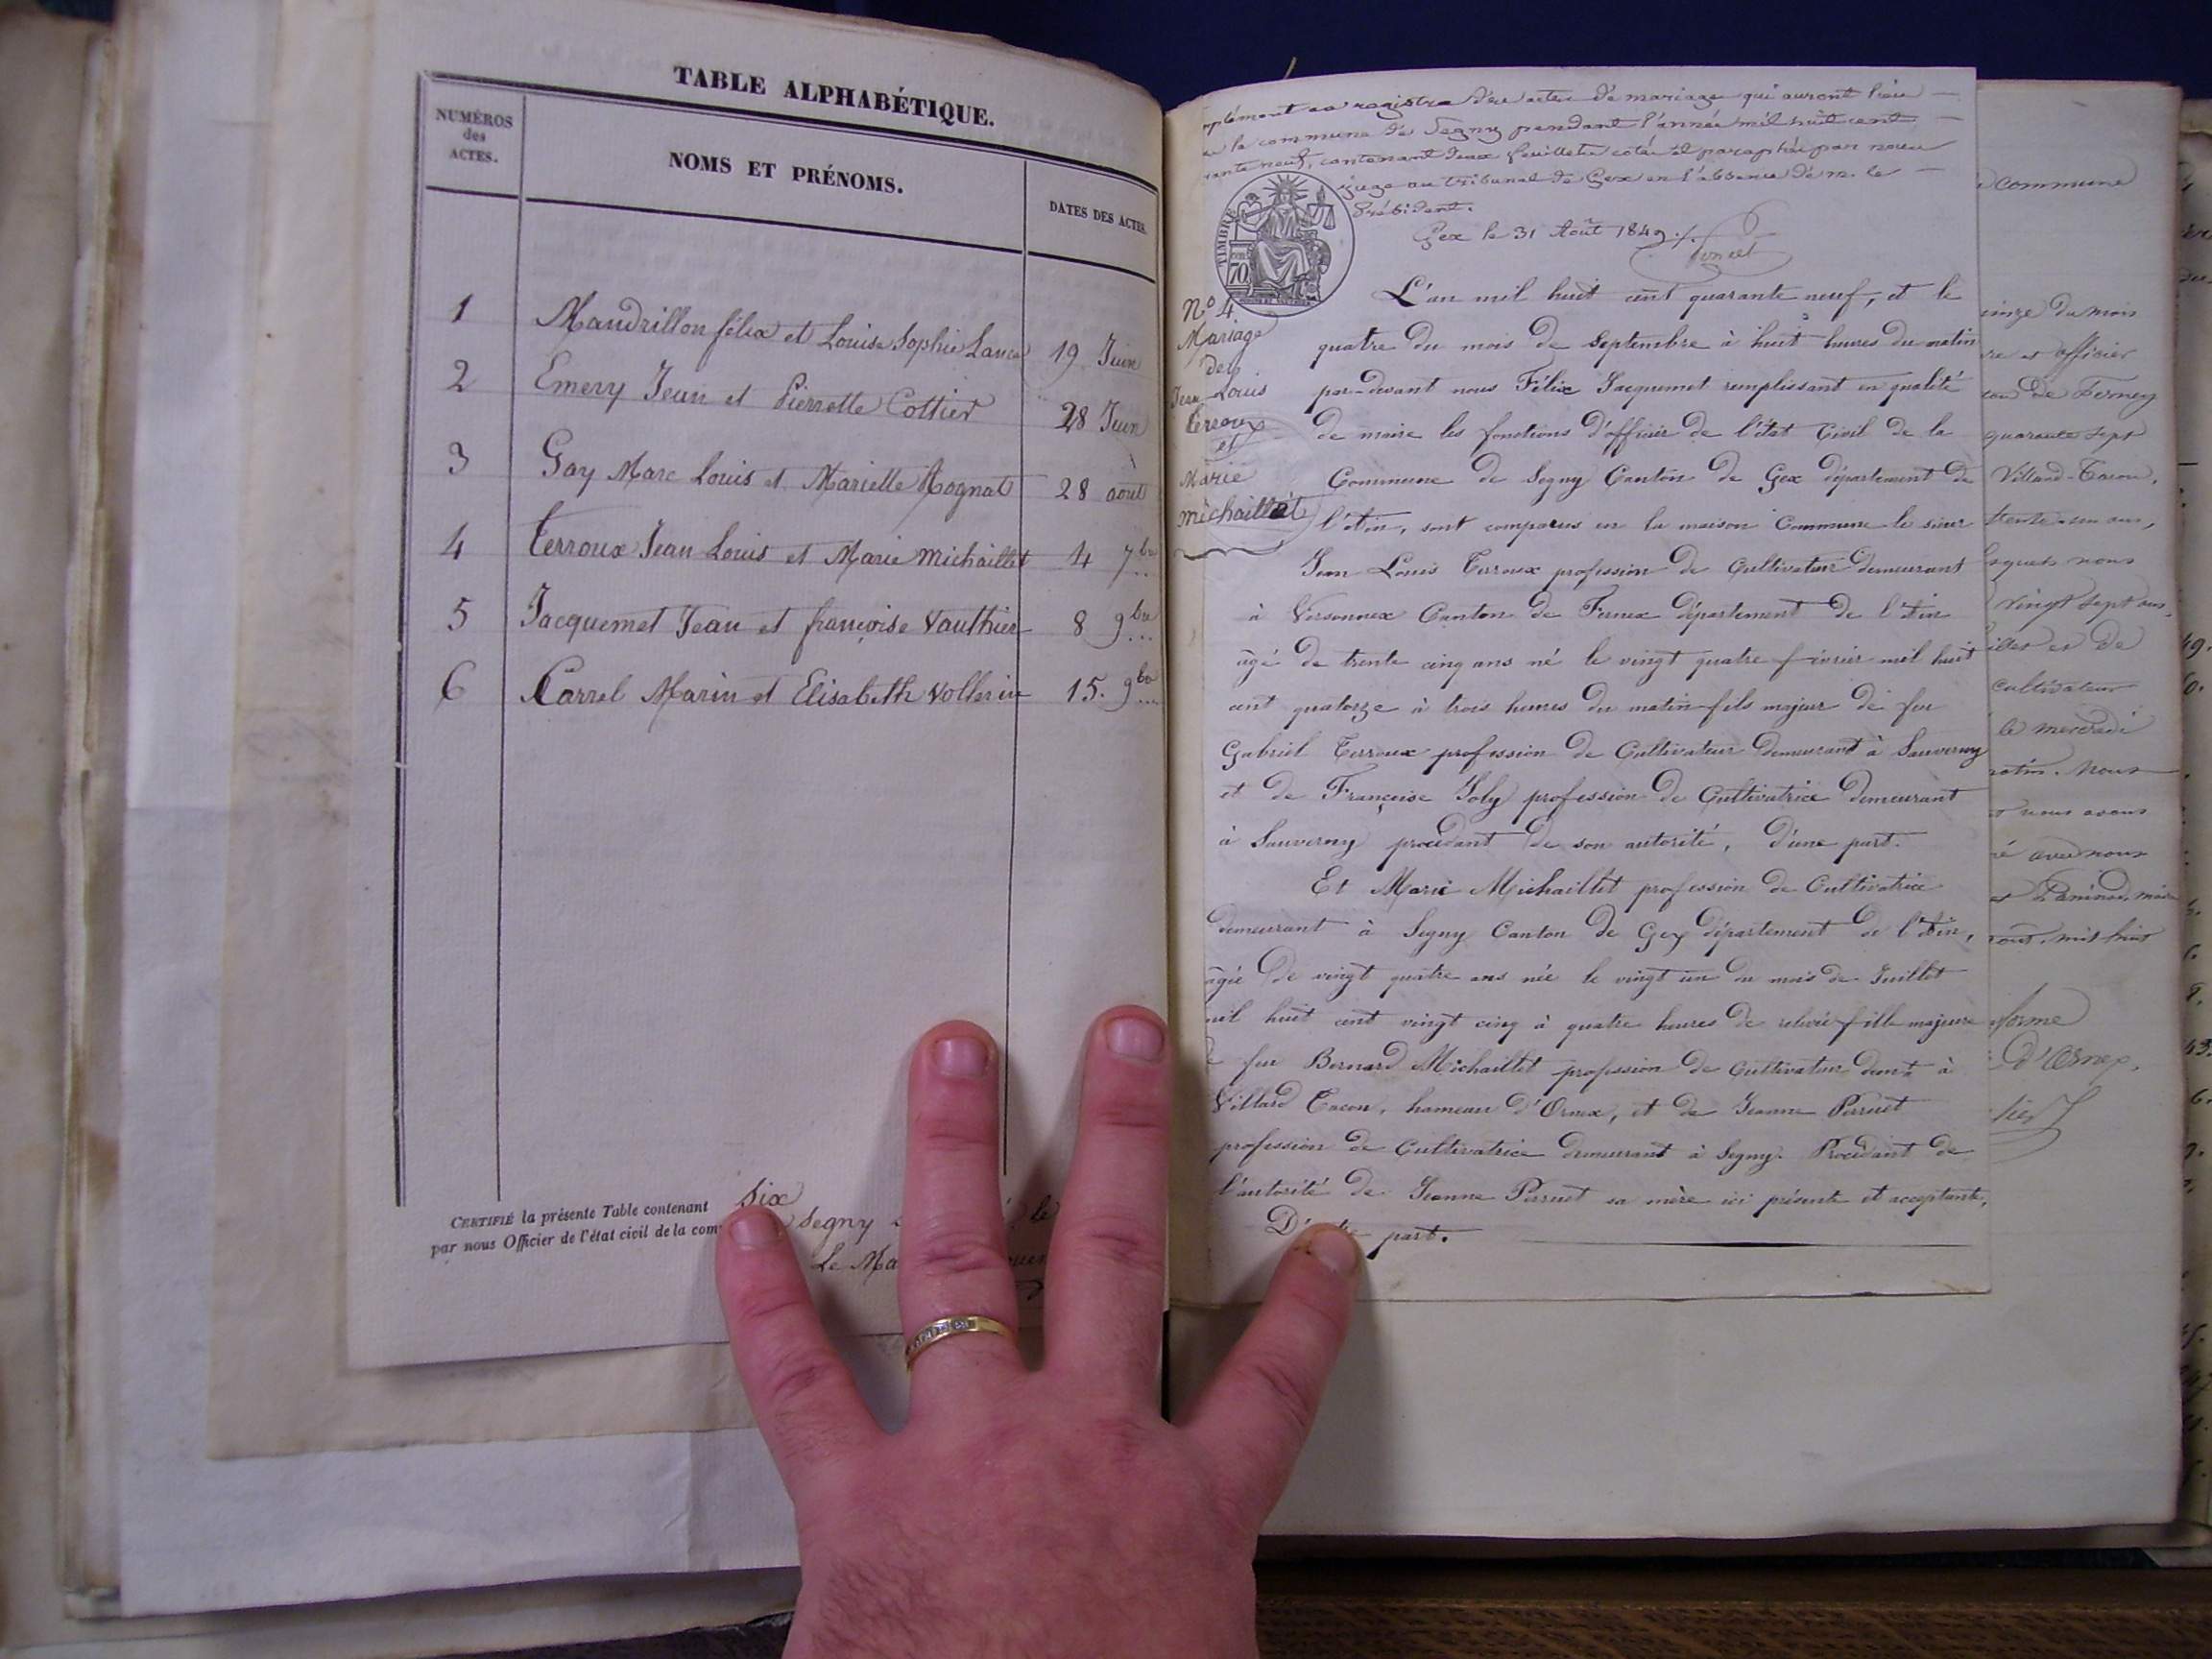 TABLE ALPHABÉTIQUE.
NUMÉROS
des
ACTES.
NOMS ET PRÉNOMS.
DATES DES ACTES.
1 Mandrillon félix et Louise Sophie 19 Juin
2 Emery Jean et Pierrette Cottier 28 Juin
3 Gay Marc Louis et Mariette Rognat 28 août
4 Terroux Jean Louis et Marie Michaillet 4 7bre
5 Jacquemet Jean et françoise Vauthier 8 9bre
6 Carrel Marin et Elisabeth Vollerin 15. 9bre
CERTIFIÉ la présente Table contenant six
par nous Officier de l'état civil de la com Segny le
Le Ma
registre des actes de mariage qui auront lieu
la commune de Segny pendant l'année mil huit cent
neuf, contenant deux feuillets cotés et paraphés par nous
juge au tribunal de Gex en l'absence de m. le
Président.
Gex le 31 Août 1849
TIMBRE
70
N° 4
Mariage
de
Jean Louis
Terroux
et
Marie
Michaillet
L'an mil huit cent quarante neuf, et le
quatre du mois de Septembre à huit heures du matin
par-devant nous Félix Jacquemet remplissant en qualité
de maire les fonctions d'officier de l'état Civil de la
Commune de Segny Canton de Gex département de
l'Ain, sont comparus en la maison Commune le sieur
Jean Louis Terroux profession de Cultivateur demeurant
à Versonnex Canton de Fernex département de l'Ain
âgé de trente cinq ans né le vingt quatre février mil huit
cent quatorze à trois heures du matin fils majeur de feu
Gabriel Terroux profession de Cultivateur demeurant à Sauverny
et de Françoise Joly profession de Cultivatrice demeurant
à Sauverny procédant de son autorité, d'une part.
Et Marie Michaillet profession de Cultivatrice
demeurant à Segny Canton de Gex département de l'Ain,
âgée de vingt quatre ans née le vingt un du mois de Juillet
mil huit cent vingt cinq à quatre heures de relevée fille majeure
feu Bernard Michaillet profession de Cultivateur demt à
Villard Tacon, hameau d'Ornex, et de Jeanne Perruet
profession de Cultivatrice demeurant à Segny. Procédant de
l'autorité de Jeanne Perruet sa mère ici présente et acceptante,
part.
commune
du mois
et officier
de Ferney
quarante sept
Villard-Tacon,
trente-un ans,
nous
vingt sept ans,
et de
cultivateur
le mercredi
Nous
nous avons
avec nous
mil huit
d'Ornex,